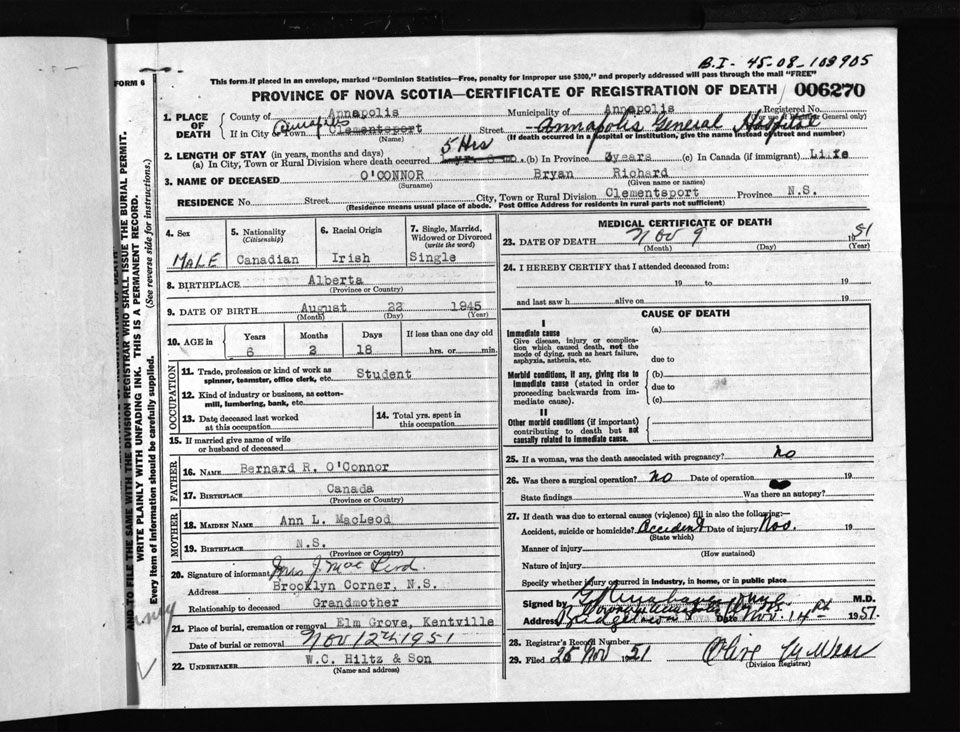 B.I- 45-08-108905
FORM 6
This form if placed in an envelope, marked "Dominion Statistics—Free, penalty for improper use $300," and properly addressed will pass through the mail "FREE"
PROVINCE OF NOVA SCOTIA—CERTIFICATE OF REGISTRATION OF DEATH 006270
1. PLACE OF DEATH { County of Annapolis Municipality of Annapolis Registered No.
(For use of Registrar General only)
If in City or Town Annapolis Clementsport Street Annapolis General Hospital
(Name) (If death occurred in a hospital or institution, give the name instead of street and number)
2. LENGTH OF STAY (in years, months and days)
(a) In City, Town or Rural Division where death occurred 5 Hrs (b) In Province 3years (c) In Canada (if immigrant) Life
3. NAME OF DECEASED O'CONNOR Bryan Richard
(Surname) (Given name or names)
RESIDENCE No. Street City, Town or Rural Division Clementsport Province N.S.
(Residence means usual place of abode. Post Office Address for residents in rural parts not sufficient)
4. Sex
MALE
5. Nationality
(Citizenship)
Canadian
6. Racial Origin
Irish
7. Single, Married, Widowed or Divorced
(write the word)
Single
8. BIRTHPLACE Alberta
(Province or Country)
9. DATE OF BIRTH August 22 1945
(Month) (Day) (Year)
10. AGE in Years Months Days If less than one day old
6 2 18 hrs. or min.
OCCUPATION
11. Trade, profession or kind of work as spinner, teamster, office clerk, etc. Student
12. Kind of industry or business, as cotton-mill, lumbering, bank, etc.
13. Date deceased last worked at this occupation
14. Total yrs. spent in this occupation
15. If married give name of wife or husband of deceased
FATHER
16. NAME Bernard R. O'Connor
17. BIRTHPLACE Canada
(Province or Country)
MOTHER
18. MAIDEN NAME Ann L. MacLeod
19. BIRTHPLACE N.S.
(Province or Country)
20. Signature of informant Mrs J. Mac Leod.
Address Brooklyn Corner, N.S.
Relationship to deceased Grandmother
21. Place of burial, cremation or removal Elm Grove, Kentville
Date of burial or removal Nov 12th 1951
22. UNDERTAKER W.C. Hiltz & Son
(Name and address)
MEDICAL CERTIFICATE OF DEATH
23. DATE OF DEATH Nov 9 1951
(Month) (Day) (Year)
24. I HEREBY CERTIFY that I attended deceased from:
19 to 19
and last saw h alive on 19
CAUSE OF DEATH
I
Immediate cause
Give disease, injury or complication which caused death, not the mode of dying, such as heart failure, asphyxia, asthenia, etc.
(a)
due to
Morbid conditions, if any, giving rise to immediate cause (stated in order proceeding backwards from immediate cause).
(b)
due to
(c)
II
Other morbid conditions (if important) contributing to death but not causally related to immediate cause.
25. If a woman, was the death associated with pregnancy? no
26. Was there a surgical operation? No Date of operation 19
State findings Was there an autopsy?
27. If death was due to external causes (violence) fill in also the following:—
Accident, suicide or homicide? Accident Date of injury Nov. 19
(State which)
Manner of injury
(How sustained)
Nature of injury
Specify whether injury occurred in industry, in home, or in public place
Signed by M.D.
Address Bridgetown Date Nov. 14th 1951.
28. Registrar's Record Number
29. Filed 25 Nov 1951 Olive
(Division Registrar)
AND TO FILE THE SAME WITH THE DIVISION REGISTRAR WHO SHALL ISSUE THE BURIAL PERMIT.
WRITE PLAINLY WITH UNFADING INK. THIS IS A PERMANENT RECORD.
Every item of information should be carefully supplied. (See reverse side for instructions.)